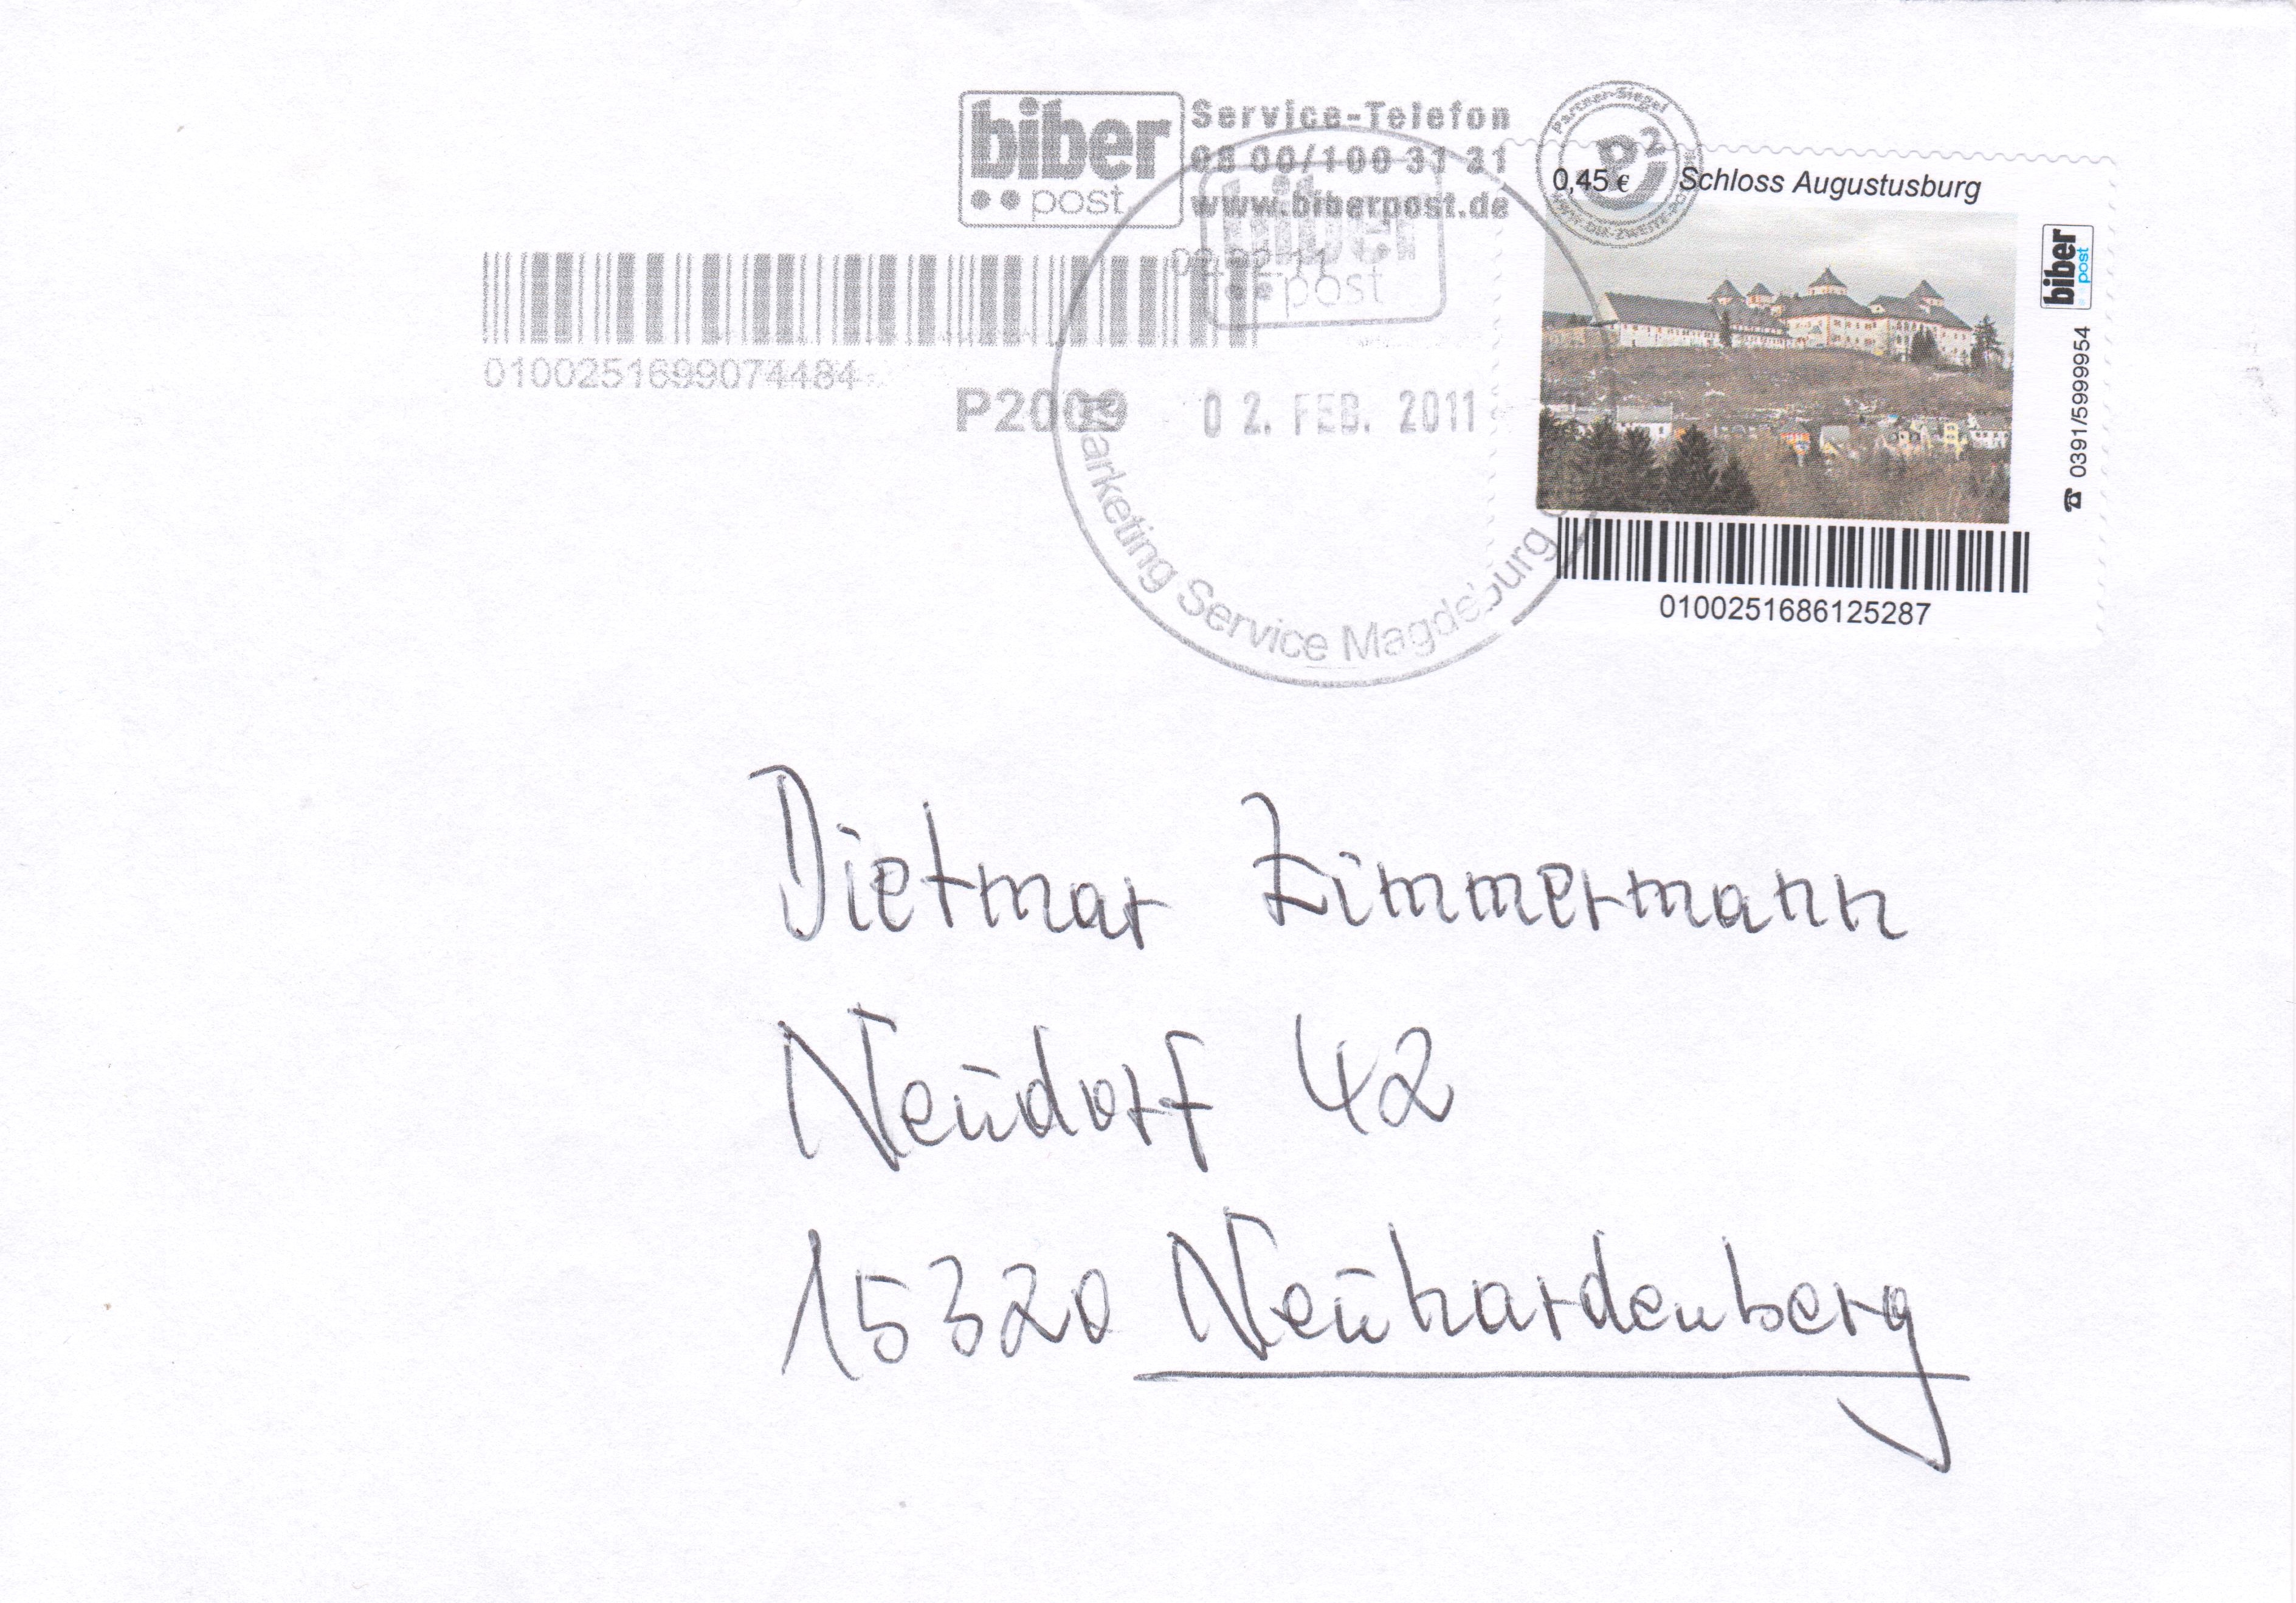 biber
post
Service-Telefon
08 00/100 31 31
www.biberpost.de
biber
post
0100251699074484
P2009
02. FEB. 2011
Marketing Service Magdeburg
Partner-Siegel
P2
0,45 € Schloss Augustusburg
biber
post
0391/5999954
0100251686125287
Dietmar Zimmermann
Neudorf 42
15320 Neuhardenberg